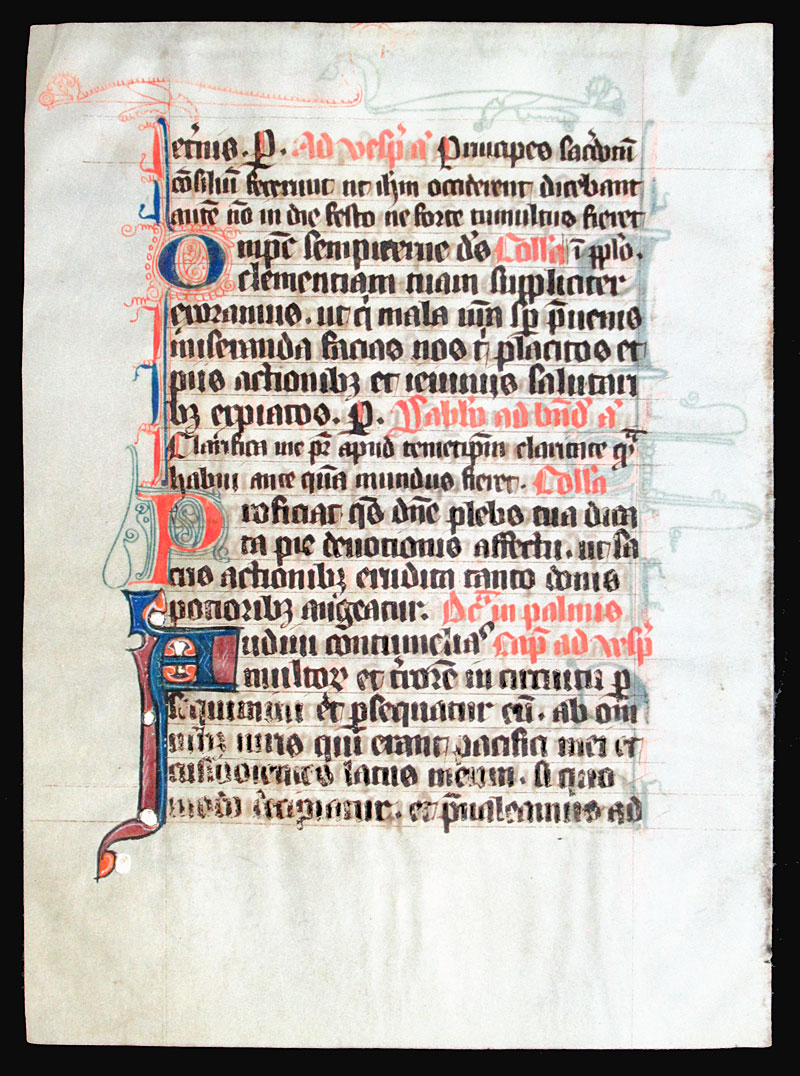 et̾nis. P. Ad vesp̾ a̾ Principes sac̾dotũ
cõsiliũ fecerunt ut ih̃m occiderent dicebant
autẽ nõ in die festo ne forte tumultus fieret
Omp̃c sempiterne d̃s Coll̃a ĩ pp̃lo.
clementiam tuam suppliciter
exoramus. ut q̇ mala ur̃a sp̃ p̃uenis
miseranda facias nos t̾ placitos et
piis actionibꝫ et ieiuniis salutari
bꝫ expiatos. P. Sabb̃o ad bñd̃ a̾
Clarifica me pr̃ apud temetip̃m claritate qͣ
habui ante quã mundus fieret. Coll̃a
Proficiat q̃s dñe plebs tua dica
ta pie deuotionis affectu. ut sa
cris actionibꝫ erudita tanto donis
potioribꝫ augeatur. Dc̃a in palmis
Audiui cõtumelias Cap̃ ad vesp̃
multoꝝ et t̾rorẽ in circuitu p̲
sequimini et p̲sequamur eũ. ab om
nibꝫ uiris qui erant pacifici mei et
custodientes latus meum. si quo
mod̃ decipiatur. et p̃ualeamus ad